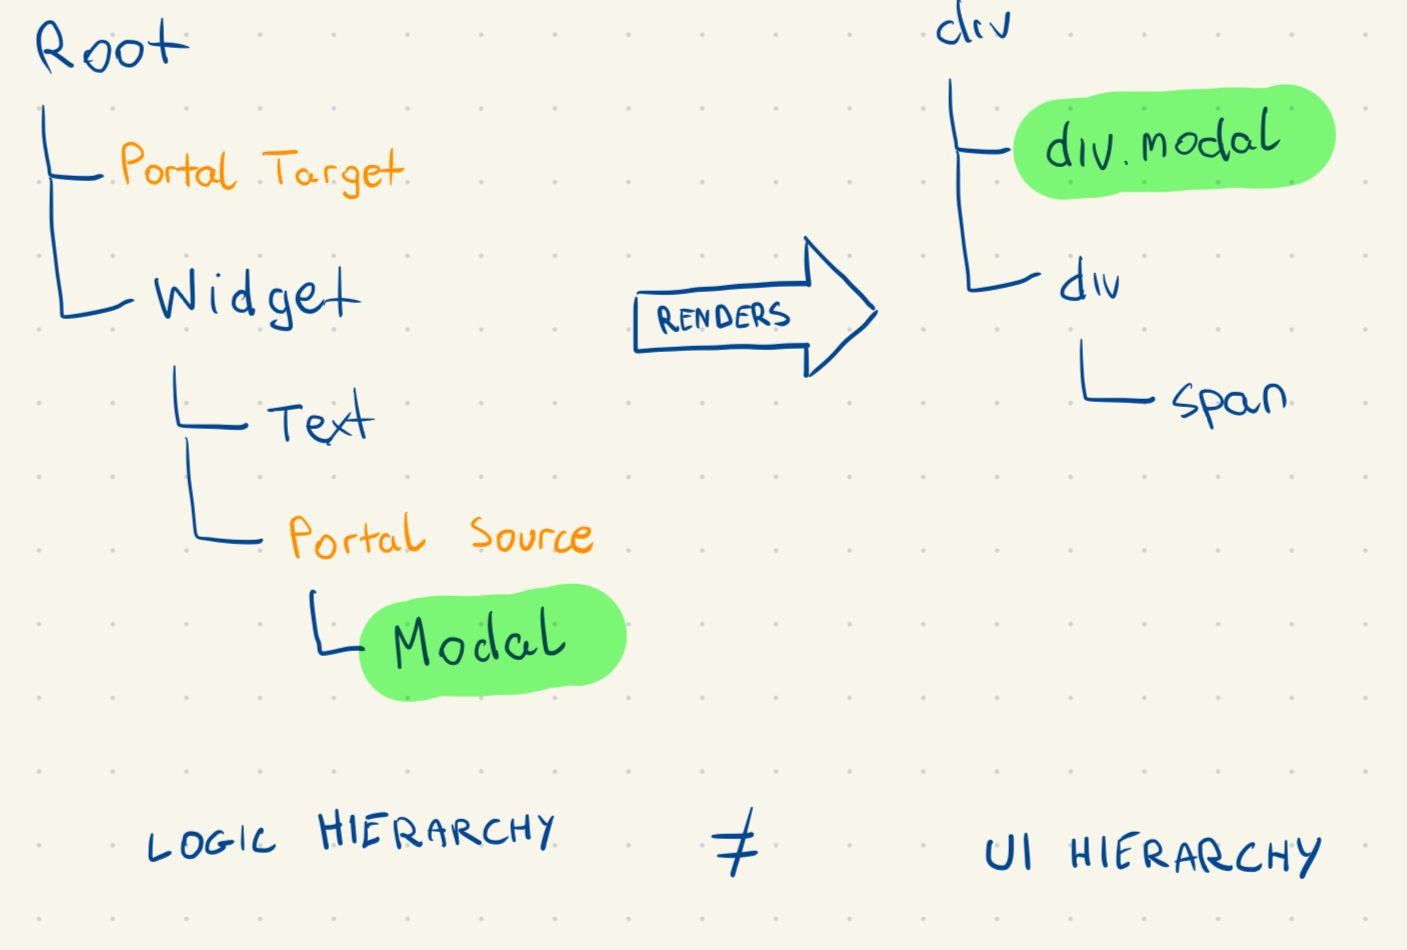 Root
Portal Target
Widget
Text
Portal Source
Modal
RENDERS
div
div.modal
div
span
LOGIC HIERARCHY ≠ UI HIERARCHY